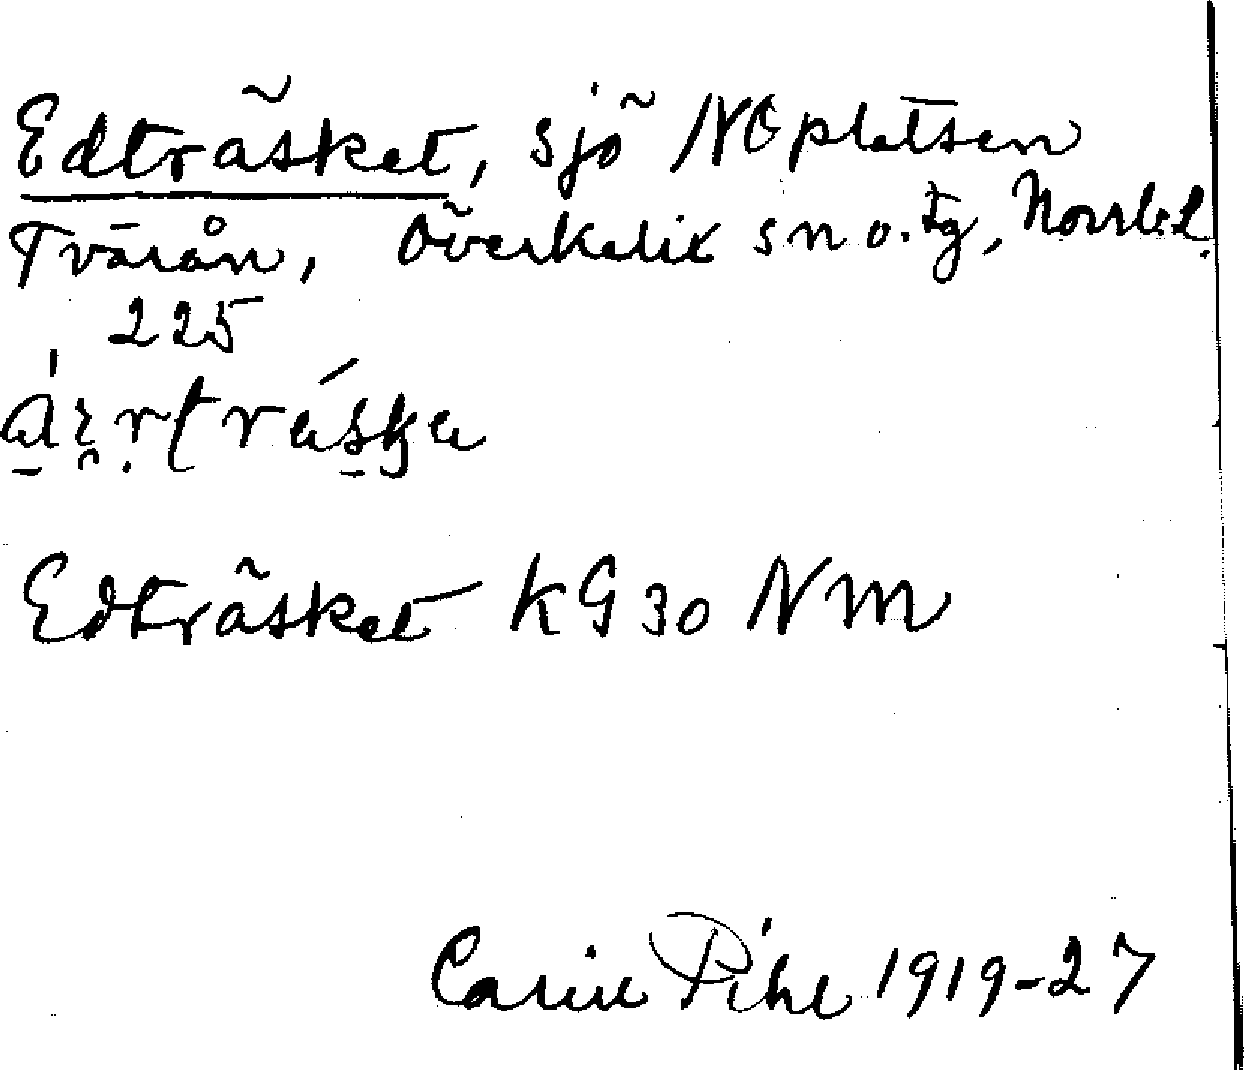 Edträsket, sjö NO platsen
Tvärån, Överkalix sn o. tg, Norrb. L.
225
Edträsket KG 30 NM
Carin Pihl 1919-27